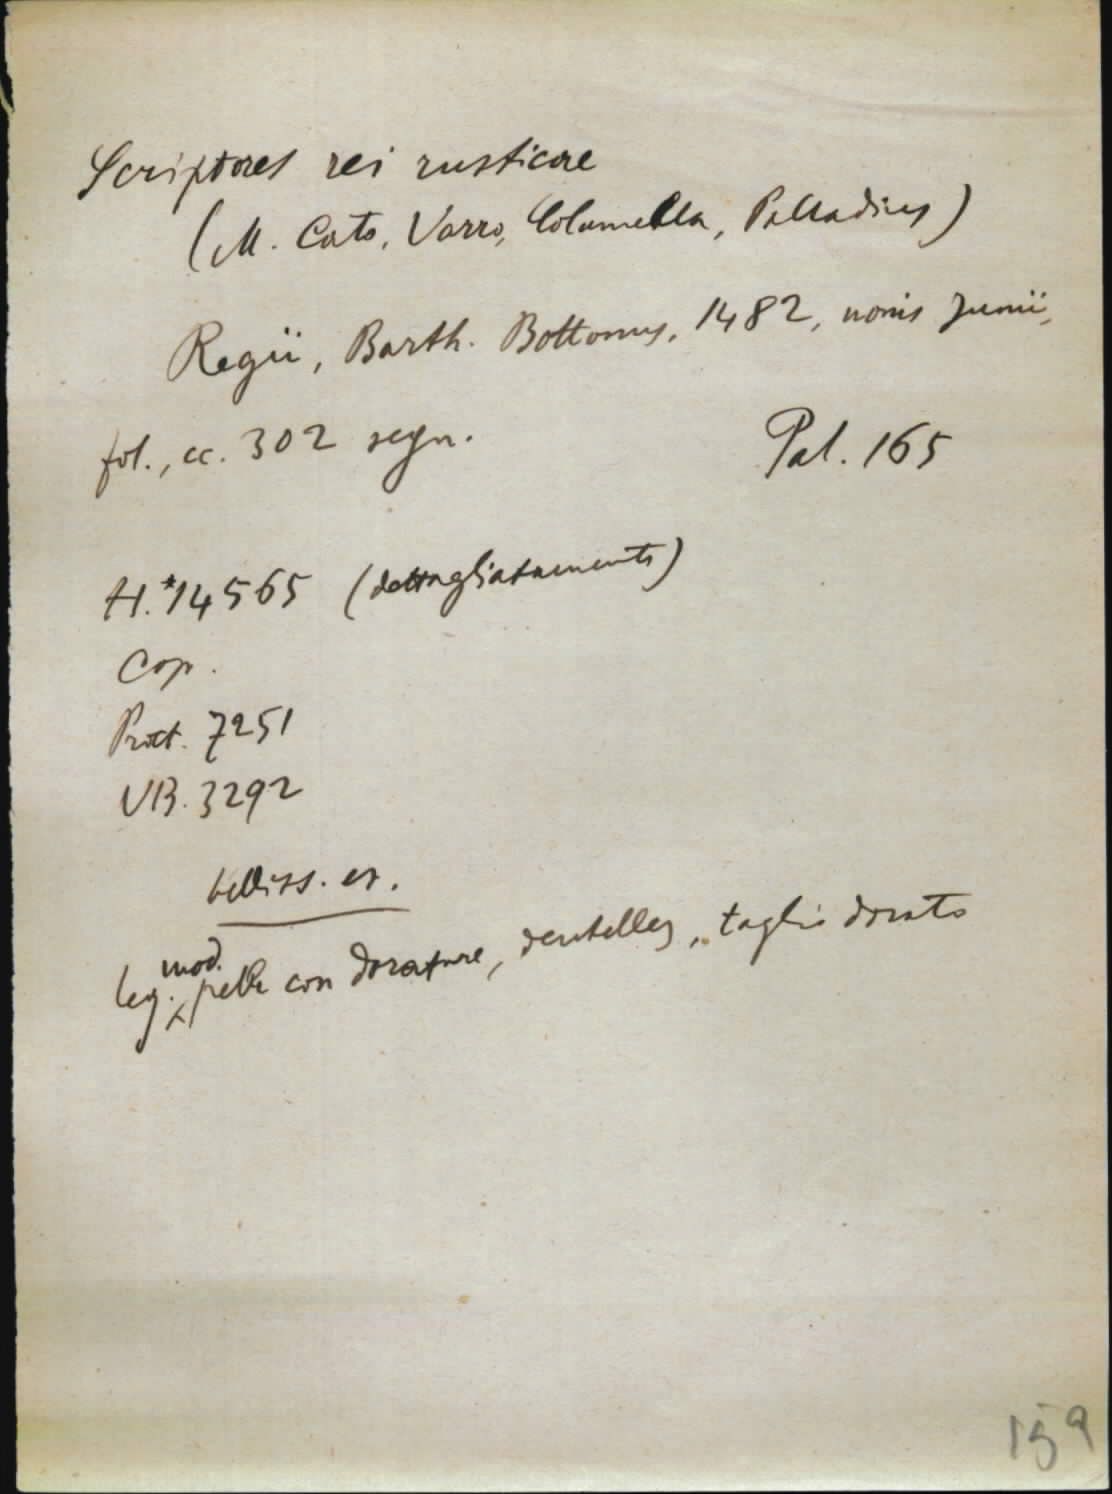 Scriptores rei rusticae
(M. Cato, Varro, Columella, Palladius)
Regii, Barth. Bottonus, 1482, nonis Junii,
fol., cc. 302 segn.
Pal. 165
H.*14565 (dettagliatamente)
Cop.
Proct. 7251
VB. 3292
belliss. es.
leg. mod. pelle con dorature, dentelles, taglio dorato
159